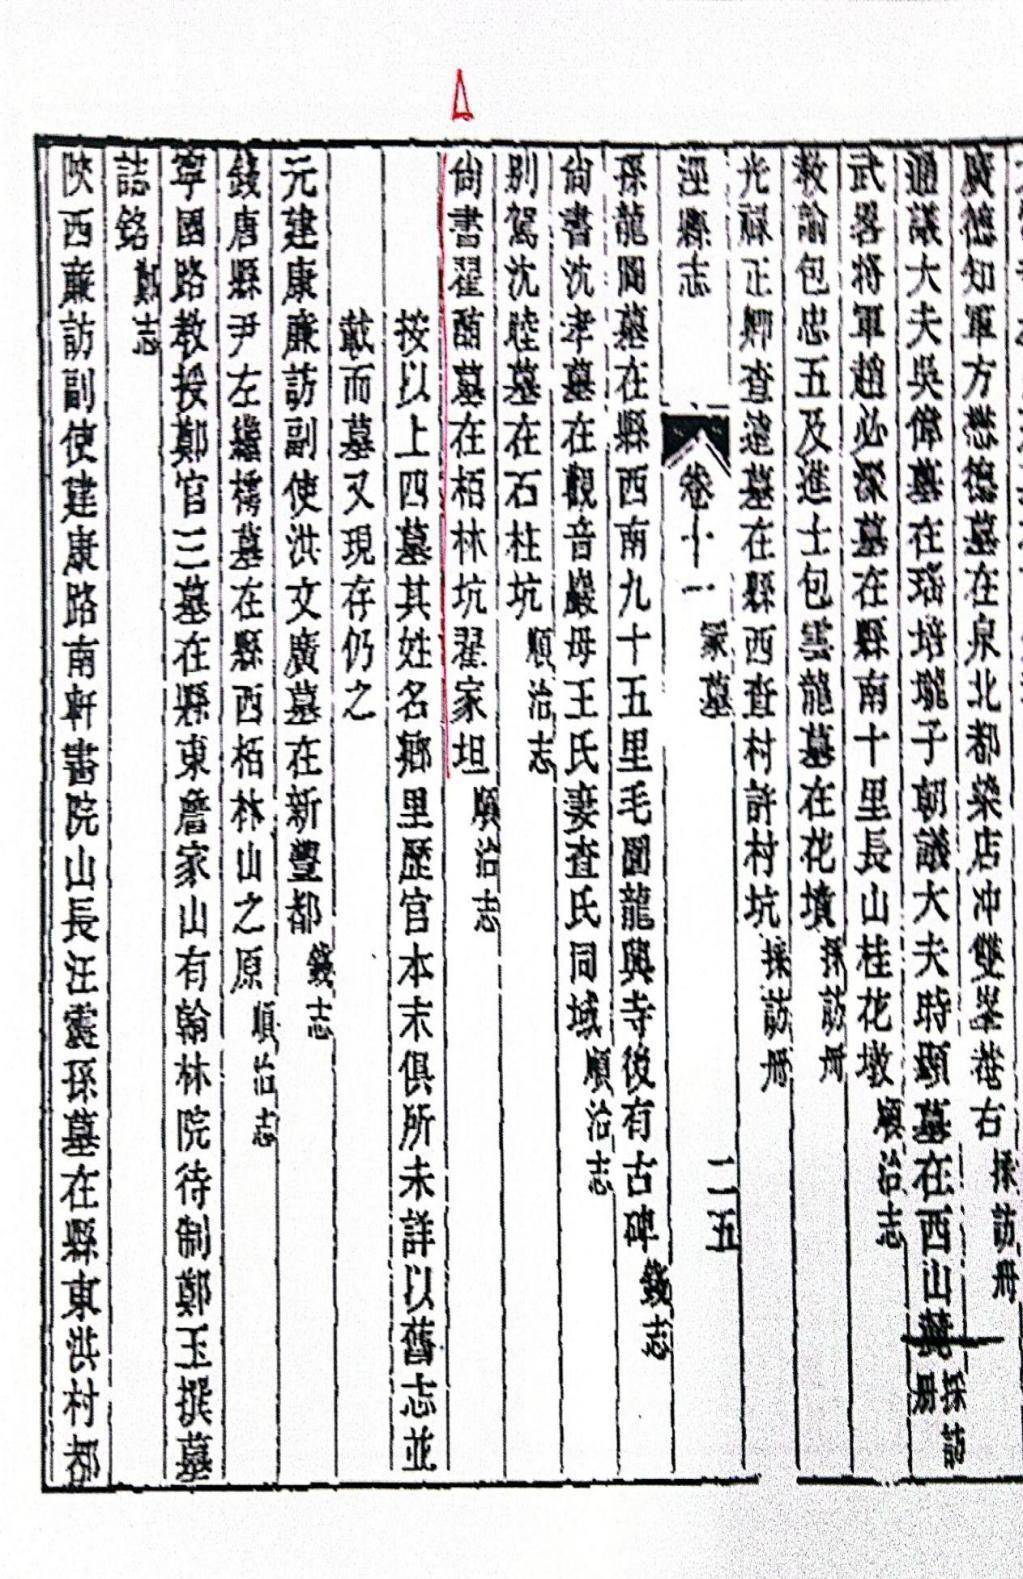 廣德知軍方懋德墓在泉北都梁店冲雙峯菴右採訪冊
通議大夫吳偉墓在瑤培壠子朝議大夫時顯墓在西山採訪冊
武畧將軍趙必深墓在縣南十里長山桂花墩順治志
教諭包忠五及進士包雲龍墓在花墳採訪冊
光祿正卿查達墓在縣西查村許村坑採訪冊
涇縣志 卷十一 冢墓 二五
孫龍圖墓在縣西南九十五里毛圖龍興寺後有古碑錢志
尙書沈孝墓在觀音巖母王氏妻查氏同域順治志
别駕沈睦墓在石柱坑順治志
尙書翟酷墓在栢林坑翟家坦順治志
按以上四墓其姓名鄉里歷官本末俱所未詳以舊志並
載而墓又現存仍之
元建康廉訪副使洪文廣墓在新豐都錢志
錢唐縣尹左繼樗墓在縣西栢林山之原順治志
寧國路教授鄭官三墓在縣東詹家山有翰林院待制鄭玉撰墓
誌銘鄭志
陝西廉訪副使建康路南軒書院山長汪靈孫墓在縣東洪村都